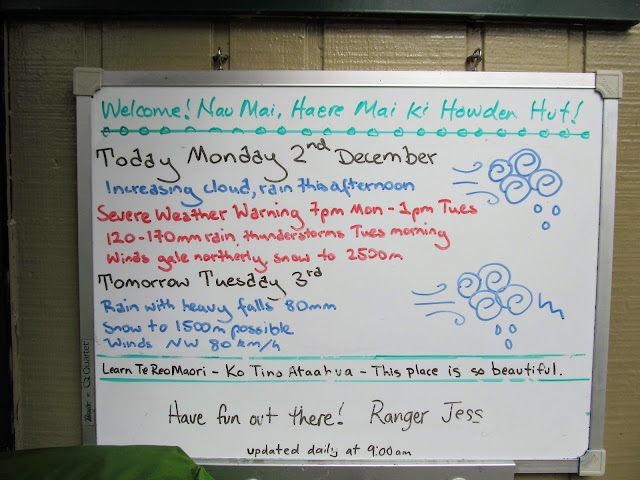 Welcome! Nau Mai, Haere Mai Ki Howden Hut!
Today Monday 2nd December
Increasing cloud, rain this afternoon
Severe Weather Warning 7pm Mon - 1pm Tues
120-170mm rain, thunderstorms Tues morning
Winds gale northerly, snow to 2500m
Tomorrow Tuesday 3rd
Rain with heavy falls 80mm
Snow to 1500m possible
Winds NW 80 km/h
Learn Te Reo Maori - Ko Tino Ataahua - This place is so beautiful.
Have fun out there! Ranger Jess
updated daily at 9:00am
Quartet